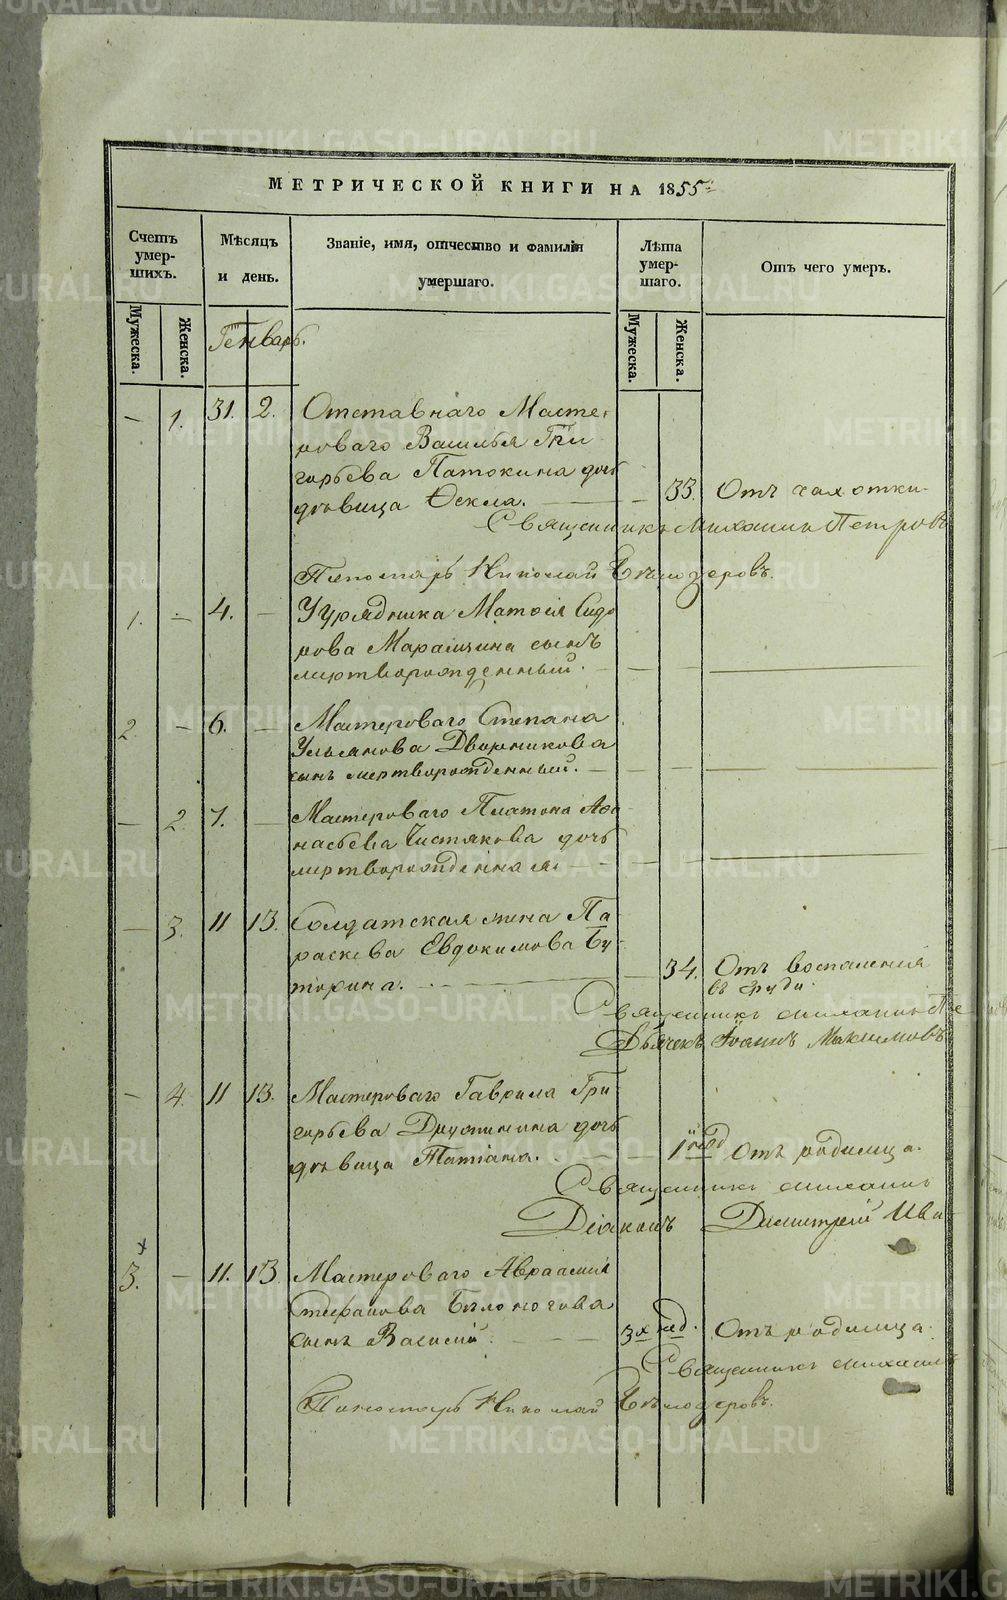 МЕТРИЧЕСКОЙ КНИГИ НА 1855й
Счетъ умер-шихъ.
Мѣсяцъ и день.
Званіе, имя, отчество и фамилія умершаго.
Лѣта умер-шаго.
Отъ чего умеръ.
Мужеска.
Женска.
Генварь.
Мужеска.
Женска.
— 1. 31. 2. Отставнаго Масте-
роваго Василья Гри-
горьева Патокина дочь
дѣвица Ѳекла. — 33. Отъ чахотки.
Священникъ Михаилъ Петровъ
Пономарь Николай Бѣлозеровъ.
1. — 4. — Урядника Матѳея Сидо
рова Марамзина сынъ
мертворожденный. — — —
2. — 6. — Мастероваго Степана
Ульянова Дворникова
сынъ мертворожденный. — — —
— 2. 7. — Мастероваго Платона Аѳо
насьева Чистякова дочь
мертворожденная. — — —
— 3. 11 13. Солдатская жена Па
раскева Евдокимова Бу-
торина. — 34. Отъ воспаленія
въ груди.
Священникъ Михаилъ Пе
Дьячекъ Іоаннъ Максимовъ
— 4. 11 13. Мастероваго Гаврила Гри
горьева Дружинина дочь
дѣвица Татіана. — 1й нед Отъ родимца.
Священникъ Михаилъ
Діаконъ Димитрій Ива
3. — 11. 13 Мастероваго Авраамія
Стефанова Бѣлоногова
сынъ Василій. — 3х нед. Отъ родимца.
Священникъ Михаилъ
Пономарь Николай Бѣлозеровъ.
METRIKI.GASO-URAL.RU